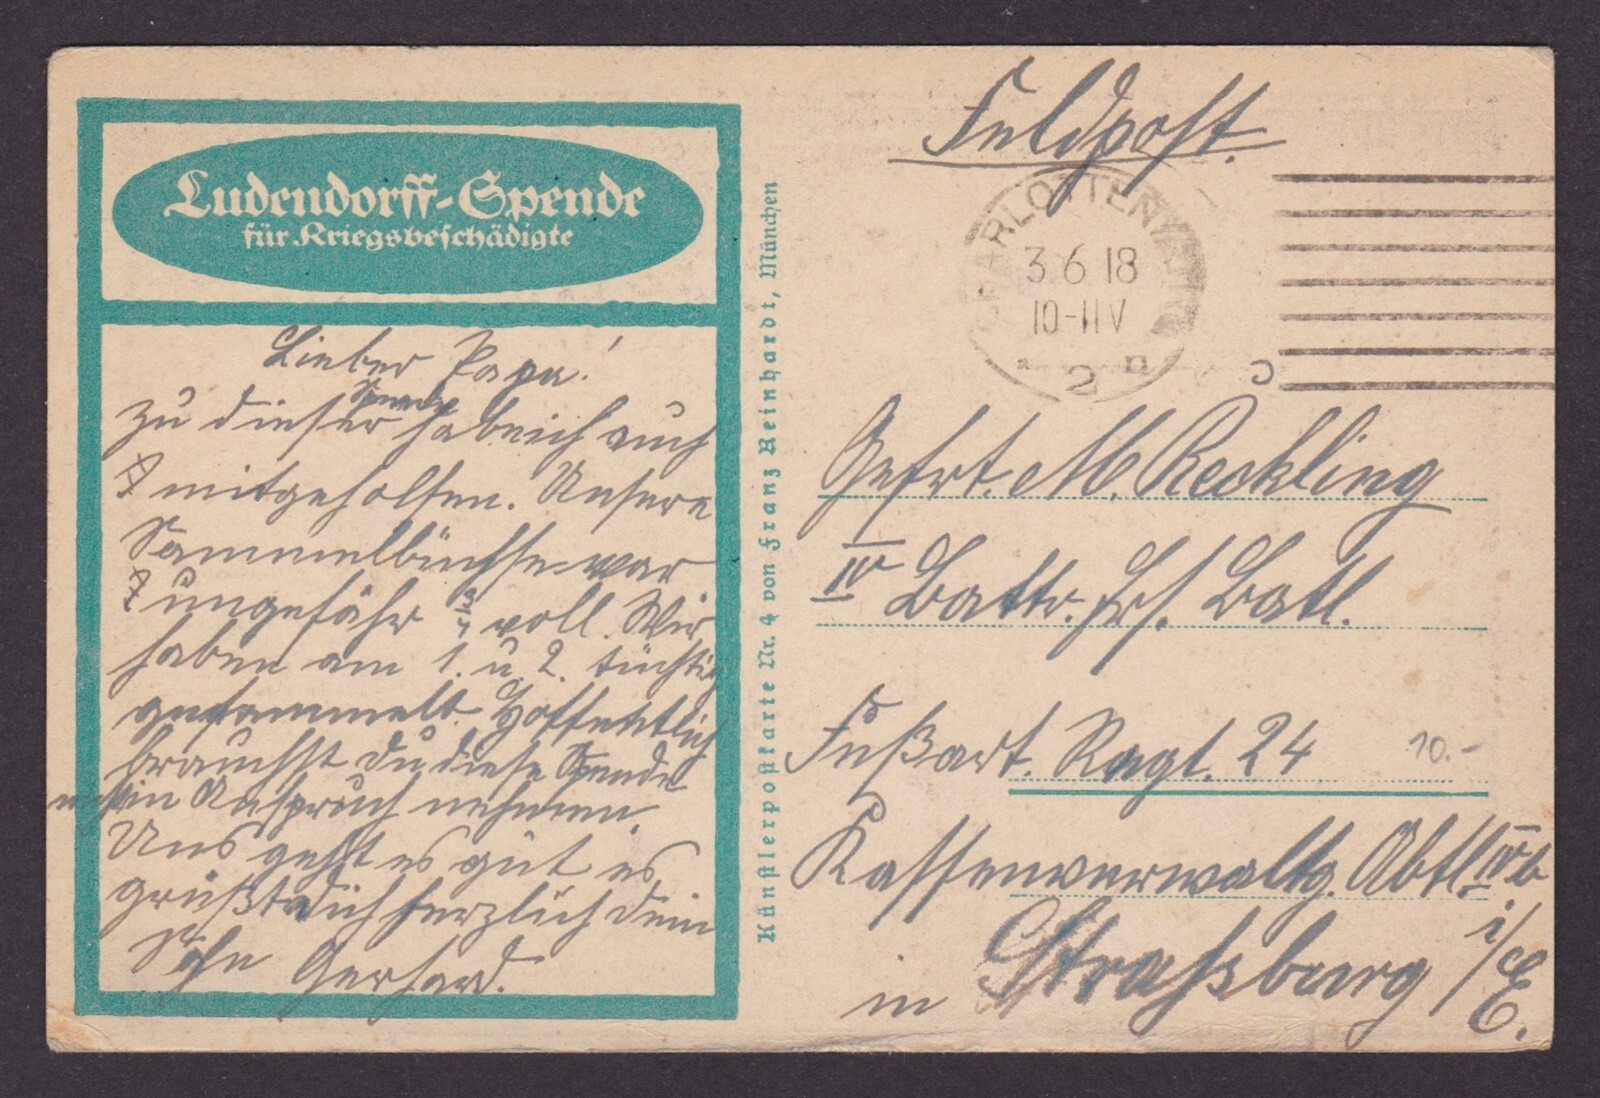 Ludendorff-Spende
für Kriegsbeschädigte
Lieber Papa!
Zu dieser Spende habe ich auch
mitgeholfen. Unsere
Sammelbüchse war
ungefähr 3/4 voll. Wir
haben am 1. u. 2. tüchtig
gesammelt. Hoffentlich
brauchst du diese Spende
nicht in Anspruch nehmen.
Uns geht es gut es
grüßt dich herzlich dein
Sohn Gerhard.
Künstlerpostkarte Nr. 4 von Franz Reinhardt, München
Feldpost.
CHARLOTTENBURG
3.6 18
10-11 V
* 2 n
Gefrt. M. Reckling
IV Battr. Batl.
Fußart. Regt. 24
10.-
Kassenverwaltg. Abtl. IVb
in Straßburg i/E.